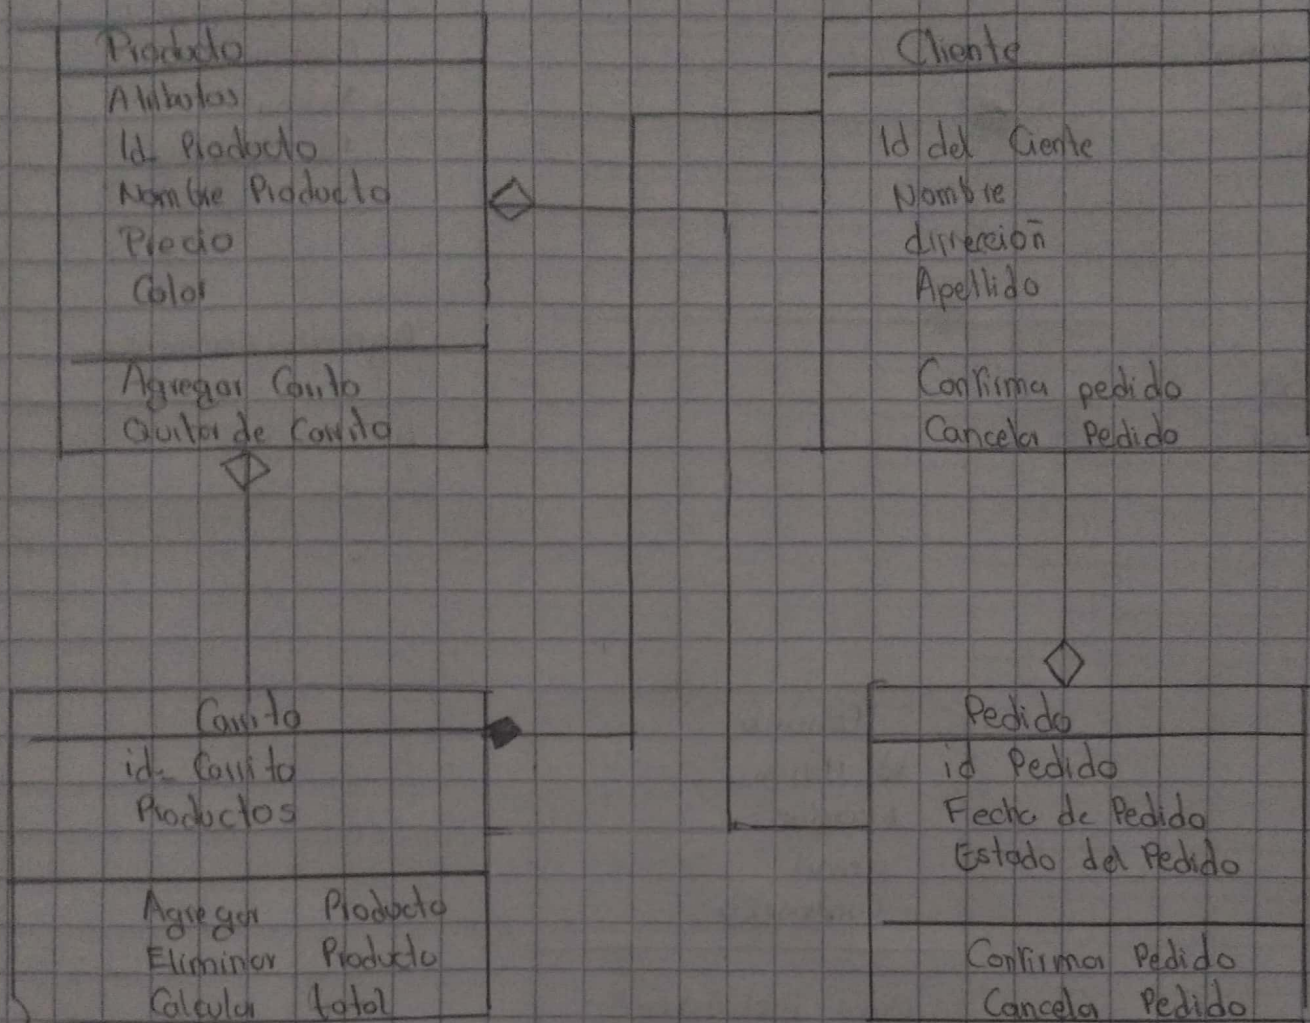 Producto
Atributos
Id Producto
Nombre Producto
Precio
Color
Agregar Carrito
Quitar de Carrito
Cliente
Id del Ciente
Nombre
dirrección
Apellido
Confirma pedido
Cancelar Pedido
Carrito
id Carrito
Productos
Agregar Producto
Eliminar Producto
Calcular total
Pedido
id Pedido
Fecha de Pedido
Estado del Pedido
Confirma Pedido
Cancela Pedido